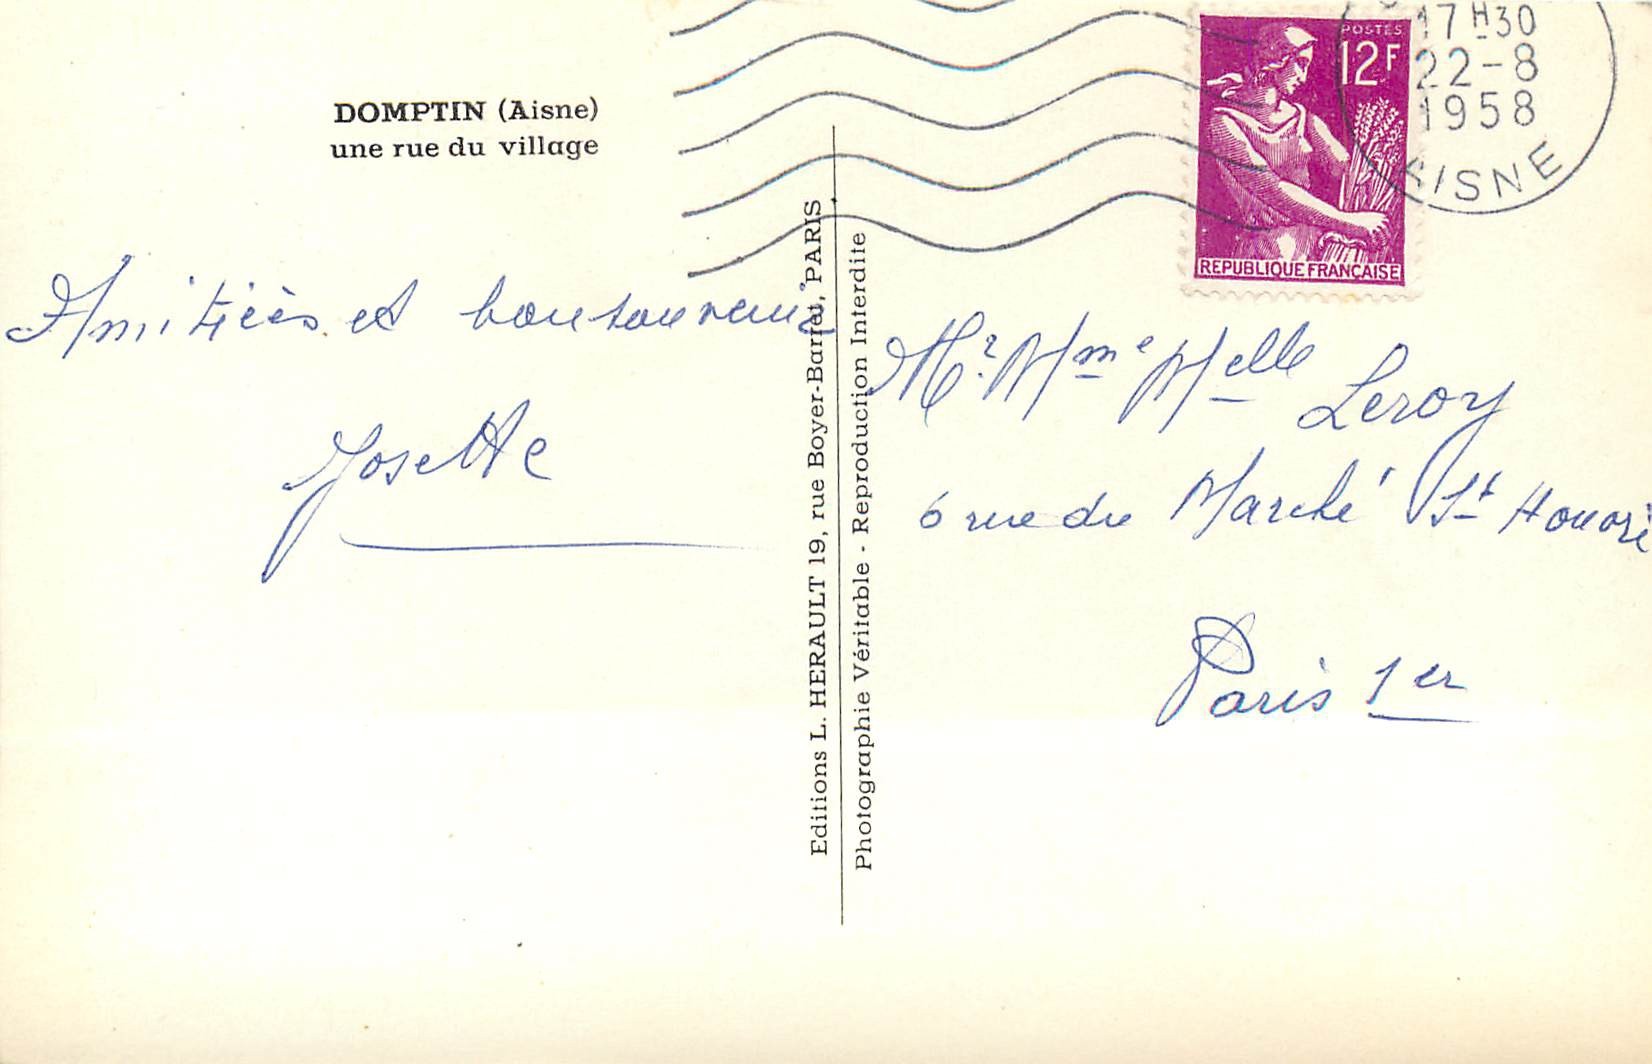 DOMPTIN (Aisne)
une rue du village
Amitiées et bon souvenir
Josette
Editions L. HERAULT 19, rue Boyer-Barret, PARIS
Photographie Véritable - Reproduction Interdite
POSTES
12F
REPUBLIQUE FRANÇAISE
17 H 30
22-8
1958
AISNE
Mr. Mme Melle Leroy
6 rue du Marché St Honoré
Paris 1er